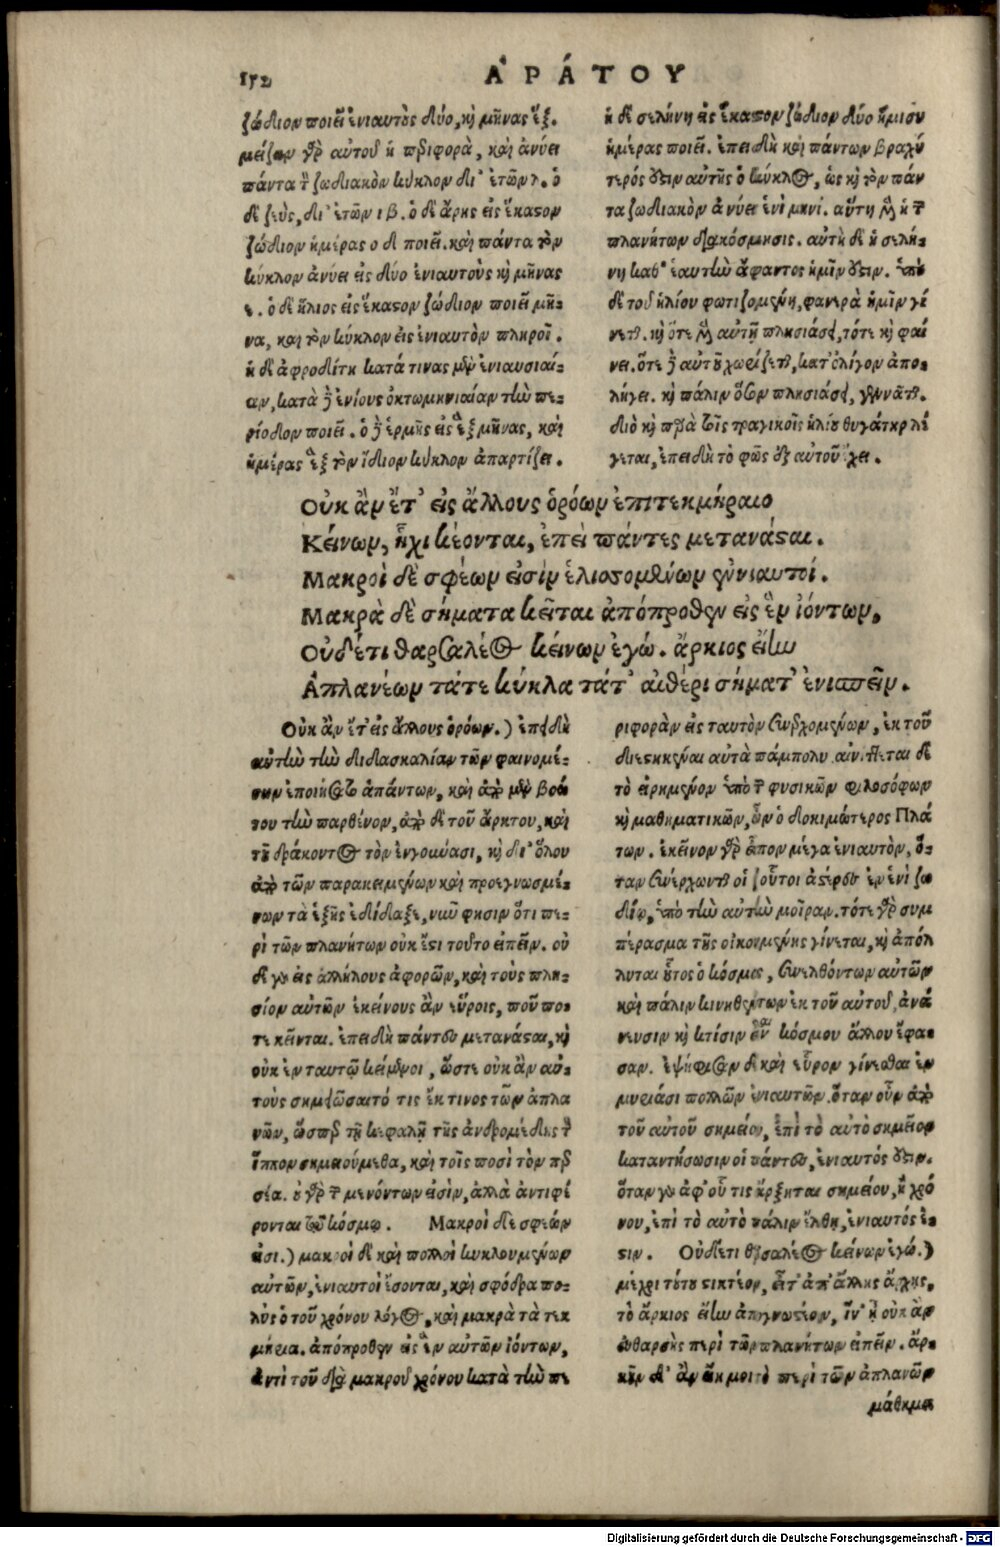 152
ἈΡΆΤΟΥ
ζώδιον ποιεῖ ἐνιαυτοὺς δύο, καὶ μῆνας ἕξ.
μείζων γὰρ αὐτοῦ ἡ περιφορὰ, καὶ ἀνύει
πάντα τὸν ζωδιακὸν κύκλον δι' ἐτῶν λ. ὁ
δὲ ζεὺς, δι' ἐτῶν ιβ. ὁ δὲ ἄρης εἰς ἕκαστον
ζώδιον ἡμέρας ο δ ποιεῖ. καὶ πάντα τὸν
κύκλον ἀνύει εἰς δύο ἐνιαυτοὺς καὶ μῆνας
ε. ὁ δὲ ἥλιος εἰς ἕκαστον ζώδιον ποιεῖ μῆ-
να, καὶ τὸν κύκλον εἰς ἐνιαυτὸν πληροῖ.
ἡ δὲ ἀφροδίτη κατά τινας μὲν ἐνιαυσιαί-
αν, κατὰ δὲ ἐνίους ὀκτωμηνιαίαν τὴν πε-
ρίοδον ποιεῖ. ὁ δὲ ἑρμῆς εἰς ἓξ μῆνας, καὶ
ἡμέρας ἓξ τὸν ἴδιον κύκλον ἀπαρτίζει.
ἡ δὲ σελήνη εἰς ἕκαστον ζώδιον δύο ἥμισυ
ἡμέρας ποιεῖ. ἐπειδὴ καὶ πάντων βραχύ
τερός ἐστιν αὐτῆς ὁ κύκλος, ὡς καὶ τὸν πάν
τα ζωδιακὸν ἀνύει ἑνὶ μηνί. αὕτη μὲν ἡ τῶν
πλανήτων διακόσμησις. αὐτὴ δὲ ἡ σελή-
νη καθ' ἑαυτὴν ἄφαντος ἡμῖν ἐστιν. ὑπὸ
δὲ τοῦ ἡλίου φωτιζομένη, φανερὰ ἡμῖν γί
νεται. καὶ ὅτε μὲν αὐτῇ πλησιάσει, τότε καὶ φαί
νει. ὅτε δὲ αὐτοῦ χωρίζεται, κατ' ὀλίγον ἀπο-
λήγει. καὶ πάλιν ὅθεν πλησιάσει, γεννᾶται.
διὸ καὶ παρὰ τοῖς τραγικοῖς ἡλίου θυγάτηρ λέ
γεται, ἐπειδὴ τὸ φῶς ἐξ αὐτοῦ ἔχει.
Οὐκ ἂν ἔτ' εἰς ἄλλους ὁρόων ἐπιτεκμήραιο
Κείνων, ἧχι κέονται, ἐπεὶ πάντες μετανάσται.
Μακροὶ δὲ σφέων εἰσὶν ἑλισσομένων ἐνιαυτοί.
Μακρὰ δὲ σήματα κεῖται ἀπόπροθεν εἰς ἓν ἰόντων,
Οὐδέτι θαρσαλέος κείνων ἐγώ. ἄρκιος εἴην
Ἀπλανέων τάτε κύκλα τάτ' αἰθέρι σήματ' ἐνισπεῖν.
Οὐκ ἂν ἔτ' εἰς ἄλλους ὁρόων.) ἐπειδὴ
αὐτὴν τὴν διδασκαλίαν τῶν φαινομέ-
νων ἐποιήσατο ἁπάντων, καὶ ἀπὸ μὲν βοώ
του τὴν παρθένον, ἀπὸ δὲ τοῦ ἄρκτου, καὶ
τοῦ δράκοντος τὸν ἐνγούνασι, καὶ δι' ὅλου
ἀπὸ τῶν παρακειμένων καὶ προεγνωσμέ-
νων τὰ ἑξῆς ἐδίδαξε, νῦν φησιν ὅτι πε-
ρὶ τῶν πλανήτων οὐκ ἔστι τοῦτο εἰπεῖν. οὐ
δὲ γὰρ εἰς ἀλλήλους ἀφορῶν, καὶ τοὺς πλη-
σίον αὐτῶν ἐκείνους ἂν εὕροις, ποῦ πο-
τε κεῖνται. ἐπειδὴ πάντες μετανάσται, καὶ
οὐκ ἐν ταυτῷ κείμενοι, ὥστε οὐκ ἂν αὐ-
τοὺς σημειώσαιτό τις ἔκ τινος τῶν ἀπλα
νῶν, ὥσπερ τῇ κεφαλῇ τῆς ἀνδρομέδης τὸν
ἵππον σημειούμεθα, καὶ τοῖς ποσὶ τὸν περ
σέα. οὐ γὰρ τῶν μενόντων εἰσὶν, ἀλλὰ ἀντιφέ
ρονται τῷ κόσμῳ. Μακροὶ δὲ σφέων
εἰσι.) μακροὶ δὲ καὶ πολλοὶ κυκλουμένων
αὐτῶν, ἐνιαυτοὶ ἔσονται, καὶ σφόδρα πο-
λὺς ὁ τοῦ χρόνου λόγος, καὶ μακρὰ τὰ τεκ
μήρια. ἀπόπροθεν εἰς ἓν αὐτῶν ἰόντων,
ἀντὶ τοῦ διὰ μακροῦ χρόνου κατὰ τὴν πε
ριφορὰν εἰς ταυτὸν συνερχομένων, ἐκ τοῦ
διεστηκέναι αὐτὰ πάμπολυ. αἰνίττεται δὲ
τὸ εἰρημένον ὑπὸ τῶν φυσικῶν φιλοσόφων
καὶ μαθηματικῶν, ὧν ὁ δοκιμώτερος Πλά
των. ἐκεῖνον γὰρ εἶπον μέγα ἐνιαυτὸν, ὅ-
ταν συνέρχωνται οἱ ζ οὗτοι ἀστέρες ἐν ἑνὶ ζω
δίῳ, ὑπὸ τὴν αὐτὴν μοῖραν. τότε γὰρ συμ
πέρασμα τῆς οἰκουμένης γίνεται, καὶ ἀπόλ
λυται οὗτος ὁ κόσμος, συνελθόντων αὐτῶν
καὶ πάλιν κινηθέντων ἐκ τοῦ αὐτοῦ, ἀνά
νευσιν καὶ κτίσιν κόσμου ἄλλου ἔφα-
σαν. ἐψήφισαν δὲ καὶ εὗρον γίνεσθαι ἐν
μυριάσι πολλῶν ἐνιαυτῶν. ὅταν οὖν ἀπὸ
τοῦ αὐτοῦ σημείου, ἐπὶ τὸ αὐτὸ σημεῖον
καταντήσωσιν οἱ πάντες, ἐνιαυτός ἐστιν.
ὅταν γὰρ ἀφ' οὗ τις ἤρξηται σημείου, ἢ χρό
νου, ἐπὶ τὸ αὐτὸ πάλιν ἔλθῃ, ἐνιαυτός ἐ-
στιν. Οὐδέτι θαρσαλέος κείνων ἐγώ.)
μέχρι τούτου στικτέον, εἶτ' ἀπ' ἄλλης ἀρχῆς,
τὸ ἄρκιος εἴην ἀναγνωστέον, ἵν' ᾖ οὐκ ἂν
εὐθαρσὴς περὶ τῶν πλανήτων εἰπεῖν. ἄρ-
κιον δ' ἂν εἴη μοι τὸ περὶ τῶν ἀπλανῶν
μάθημα
Digitalisierung gefördert durch die Deutsche Forschungsgemeinschaft - DFG